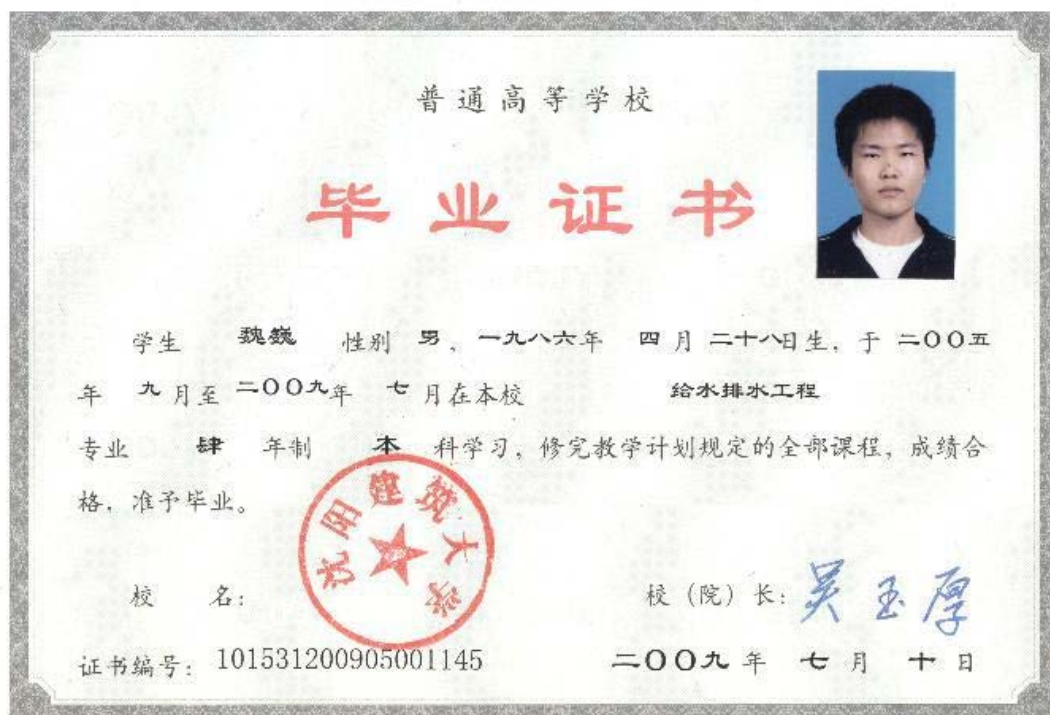 普通高等学校
毕业证书
学生 魏巍 性别 男、一九八六年 四月二十八日生，于二〇〇五
年 九月至二〇〇九年 七月在本校 给水排水工程
专业 肆 年制 本 科学习，修完教学计划规定的全部课程，成绩合
格，准予毕业。
沈阳建筑大学
校 名： 校（院）长：吴玉厚
证书编号：101531200905001145 二〇〇九年 七月 十日